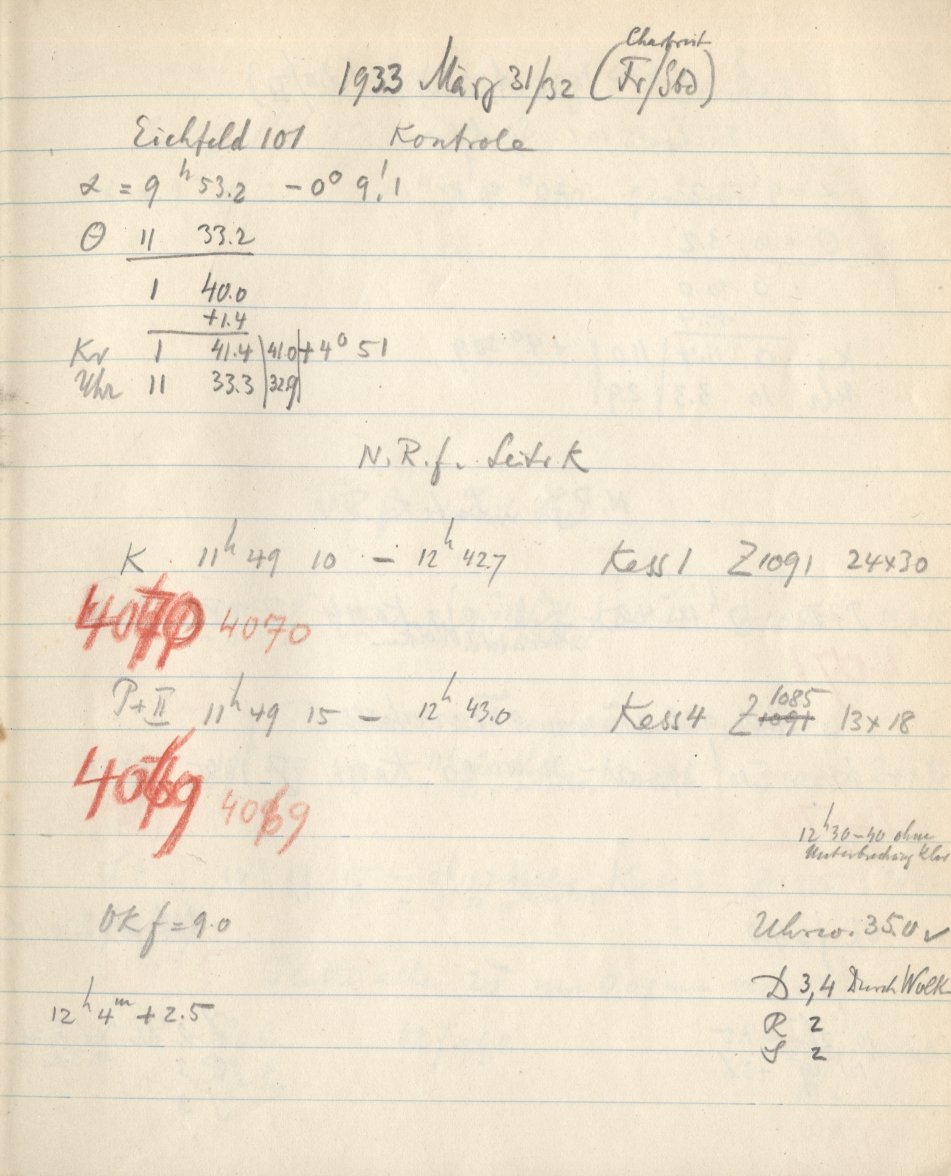 1933 März 31/32 (Fr/Sbd)
Eichfeld 101 Kontrole
α = 9h 53.2 -0° 9!1
Θ 11 33.2
1 40.0
+1.4
Kr 1 41.4 | 41.0 | +4° 51
Uhr 11 33.3 | 32.9 |
N.R.f. Seite K
K 11h 49 10 – 12h 42.7 Kass 1 Z 1091 24×30
4070 4070
P+II 11h 49 15 – 12h 43.0 Kass 4 Z 1091 1085 13×18
4069 4069
12h 30–40 ohne
Unterbrechung klar
OKf = 9.0
Uhrw. 35.0 ✓
D 3,4 Durch Wolk
12h 4m + 2.5
R 2
S 2